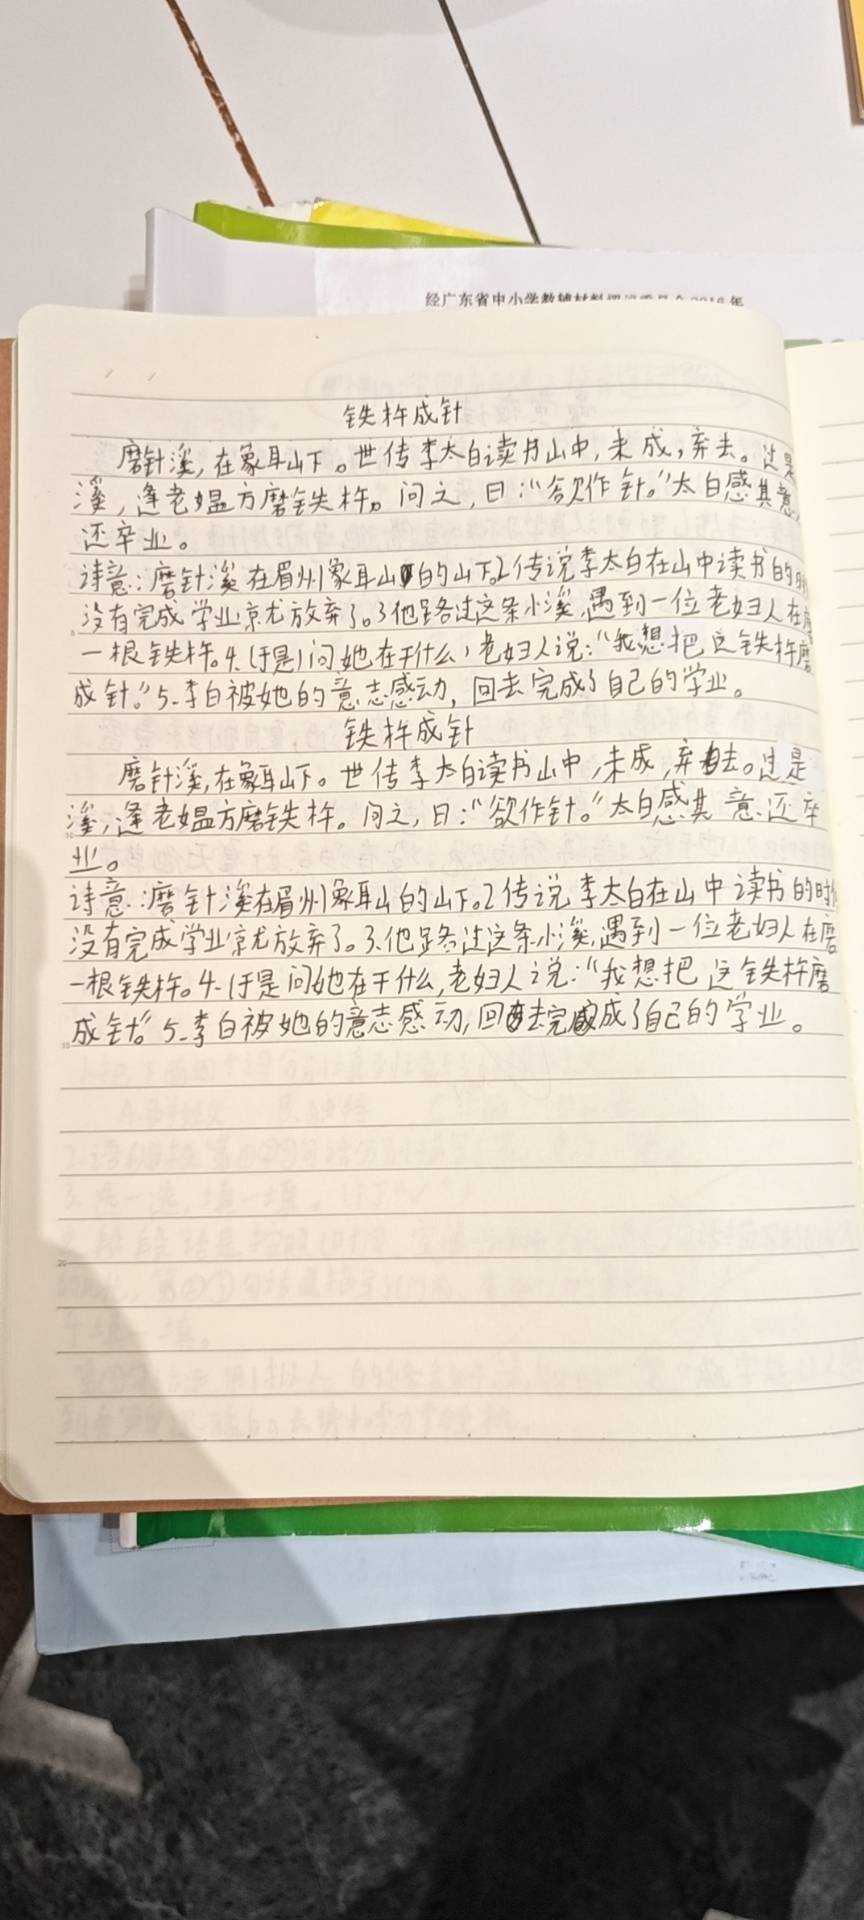 经广东省中小学教辅材料
铁杵成针
磨针溪,在象耳山下。世传李太白读书山中,未成,弃去。过是
溪,逢老媪方磨铁杵。问之,曰:“欲作针。”太白感其意,
还卒业。
诗意:磨针溪在眉州象耳山的山下。2传说李太白在山中读书的时
没有完成学业就放弃了。3他路过这条小溪,遇到一位老妇人在磨
一根铁杵。4.(于是)问她在干什么,老妇人说:“我想把这铁杵磨
成针。”5.李白被她的意志感动,回去完成了自己的学业。
铁杵成针
磨针溪,在象耳山下。世传李太白读书山中,未成,弃去。过是
溪,逢老媪方磨铁杵。问之,曰:“欲作针。”太白感其意还卒
业。
诗意:磨针溪在眉州象耳山的山下。2传说李太白在山中读书的时候
没有完成学业就放弃了。3.他路过这条小溪,遇到一位老妇人在磨
一根铁杵。4.于是问她在干什么,老妇人说:“我想把这铁杵磨
成针。”5.李白被她的意志感动,回去完成了自己的学业。